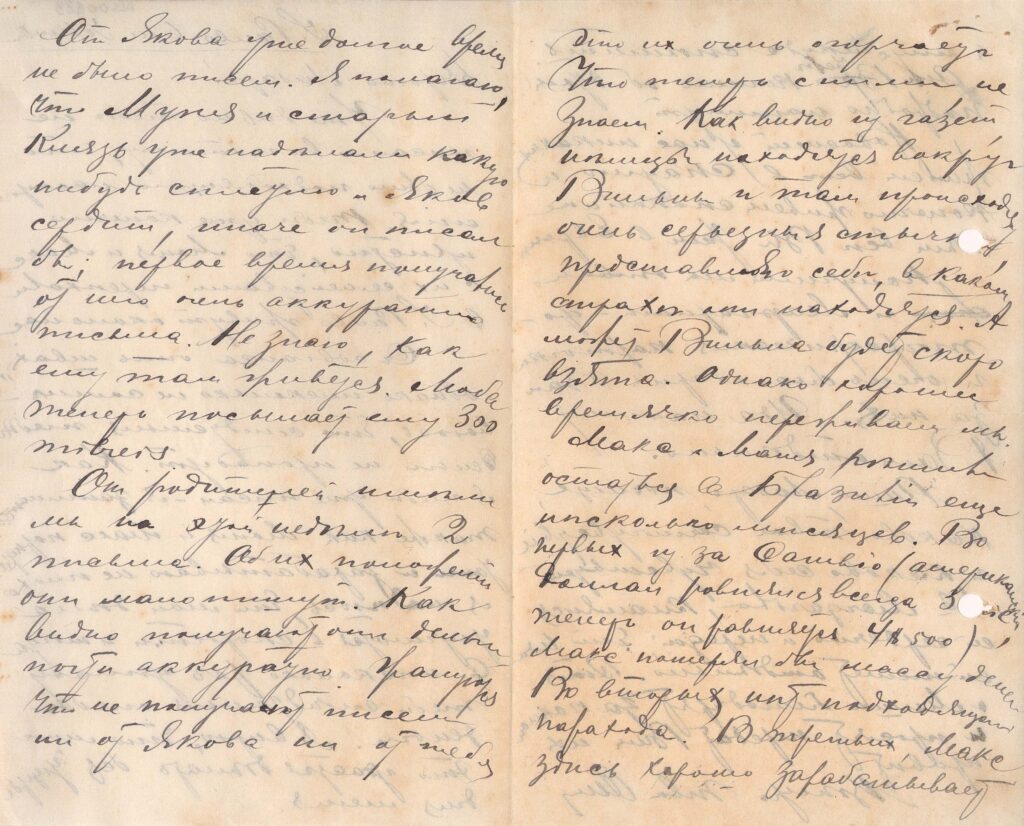 От Якова уже долгое время
не было писем. Я полагаю,
что Муня и старый
Князь уже наделали какую
нибудь сплетню и Яков
сердит, иначе он писал
бы; первое время получались
от него очень аккуратно
письма. Не знаю, как
ему там живется. Люба
теперь посылает ему 300
milreis
От родителей имели
мы на этой недели 2
письма. Об их положении
они мало пишут. Как
видно получают они деньги
почти аккуратно. Жалуются
что не получают писем
ни от Якова ни от тебя
Это их очень огорчает
Что теперь с ними не
знаем. Как видно из газет
немцы находятся вокруг
Вильны и там происходят
очень серьезныя стычки,
представляю себе, в каком
страхе они находятся. А
может Вильна будет скоро
взята. Однако хорошее
времячко переживаем мы.
Макс и Маня решили
остаться в Бразилии еще
несколько месяцев. Во
первых из за Cambio (американский
доллар ровнялся всегда 3
теперь он ровняется 4$500)
Макс потерял бы массу денег
Во вторых нет подходящаго
парахода. В третьих Макс
здесь хорошо зарабатывает